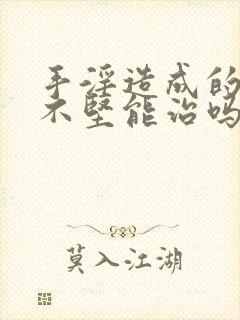 手淫造成的
不坚能治吗
莫入江湖